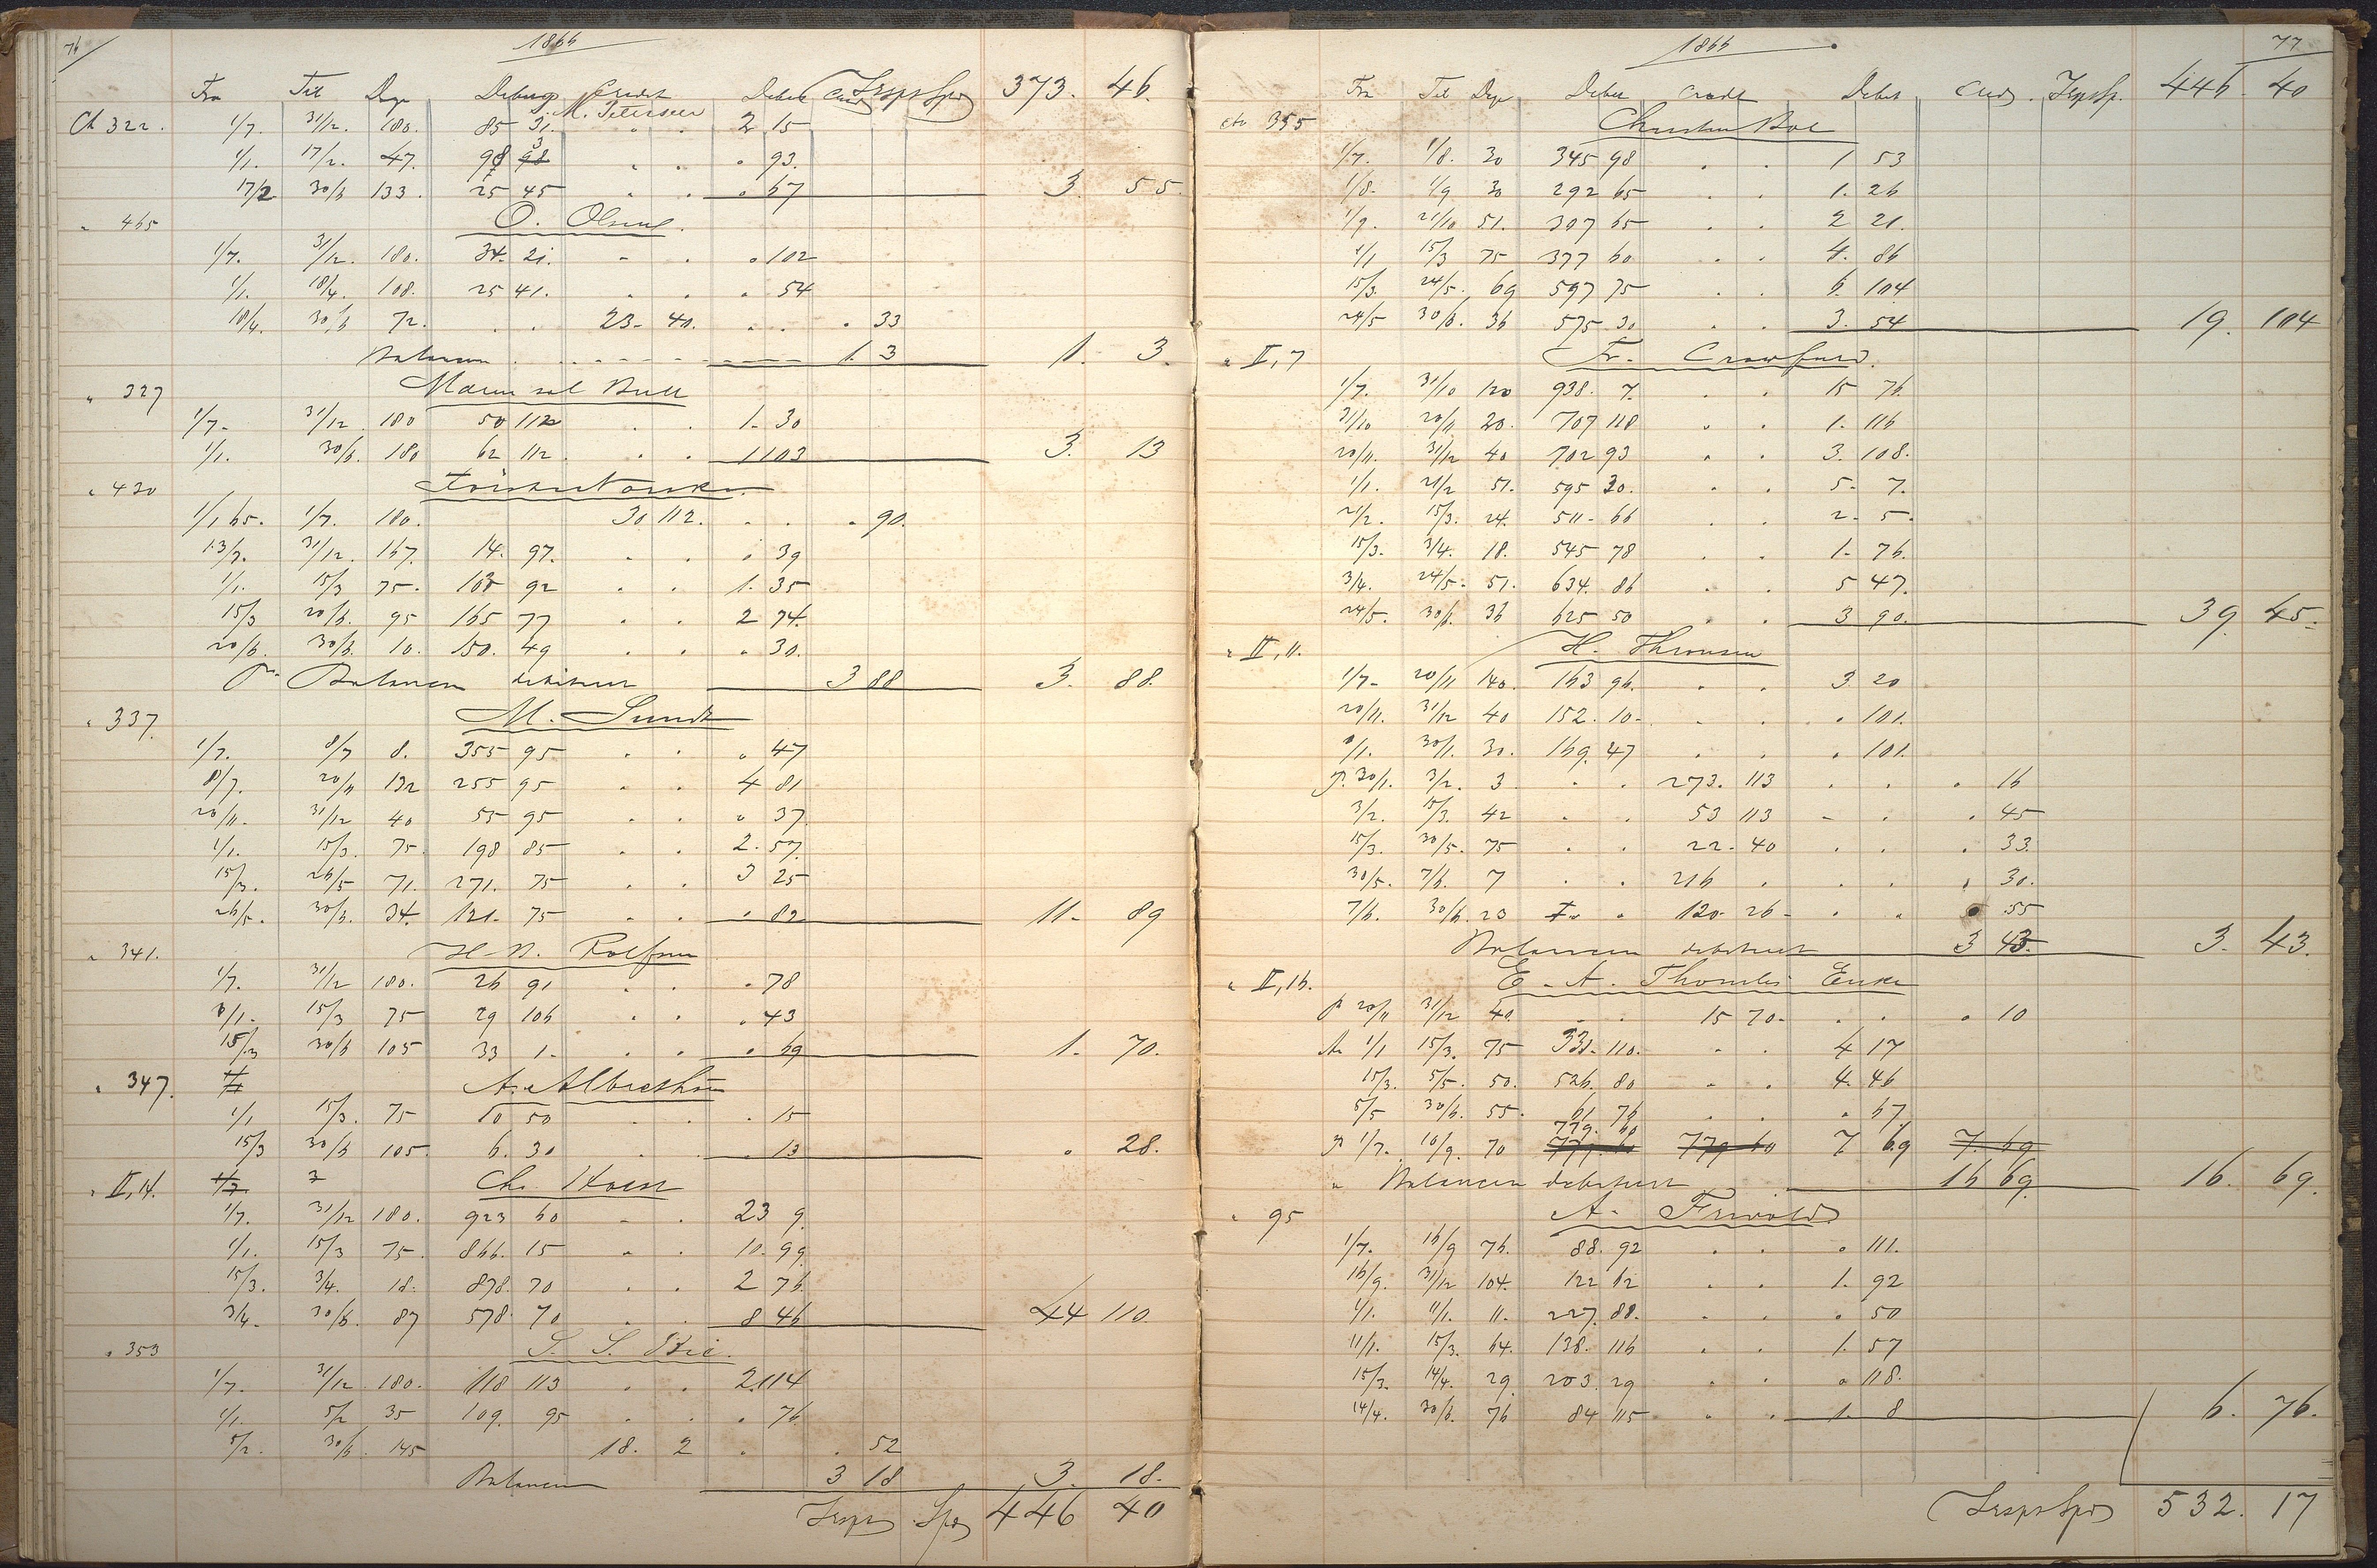 76 1866
Fra Til Dage Debet Credit Debet Cred Trsp Spd 373. 46.
Ct 322. J. M. Petersen
1/7. 31/12. 180. 85 31. . . 2 15
1/1. 17/2. 47. 98 3 . . . 93.
17/2 30/6 133. 25 45 . . . 67 3. 55.
" 465 O. Olsen
1/7. 31/12. 180. 34. 21. - . . 102
1/1. 18/4. 108. 25 41. . . . 54
18/4. 30/6 72. . . 23- 40. . . . 33
Balancen 1. 3 1. 3.
" 327 Mamsel Bull
1/7- 31/12. 180 50 112 . . 1- 30
1/1. 30/6. 180 62 112. . . 1 103 3. 13
" 430
1/1 65. 1/7. 180. 30 112. . . . 90.
13/7. 31/12. 167. 14. 97. . . . 39
1/1. 15/3 75. 108 92 . . 1. 35
15/3 20/6. 95 165 77 . . 2 74.
20/6. 30/6. 10. 150. 49 . . . 30.
Balancen debiteret 3 88 3. 88.
" 337. M. Sundt
1/7. 8/7 8. 355 95 . . " 47
8/7. 20/11 132 255 95 . . 4 81
20/11. 31/12 40 55 95 . . " 37.
1/1. 15/3. 75. 198 85 . . 2. 57.
15/3. 26/5 71. 271. 75 . . 3 25
26/5. 30/6. 34. 121. 75 . . . 82 11- 89
" 341. H. N. Rolfsen
1/7. 31/12 180. 26 91 . . . 78
1/1. 15/3 75 29 106 . . . 43
15/3 30/6 105 33 1- . . . 69 1. 70.
" 347. A. Albrethsen
1/1 15/3. 75 10 50 . . . 15
15/3 30/6 105. 6. 30 . . . 13 . 28.
" II,14. Chr. Horst
1/7. 31/12 180. 923 60 - . 23 9.
1/1. 15/3 75. 866. 15 . . 10. 99.
15/3. 3/4. 18. 878. 70 . . 2 76.
3/4. 30/6. 87 578. 70 . . 8 46 44 110.
" 353 S. S. Bie.
1/7. 31/12 180. 118 113 . . 2.114
1/1. 5/2 35 109. 95 . . . 76.
5/2. 30/6. 145 18. 2 . . 52
Balancen 3 18 3. 18.
Trsp Spd 446 40
1866 77
Fra Til Dage Debet Credt Debet Cred. Trsp Sp. 446. 40
Cto 355 Christen Boe
1/7. 1/8. 30 345 98 . . 1. 53
1/8. 1/9 30 292 65 . . 1. 26
1/9. 21/10 51. 307 65 . . 2 21.
1/1 15/3 75 377 60 . . 4. 86
15/3. 24/5. 69 597 75 . . 6. 104
24/5 30/6. 36 575 30 . . 3. 54 19. 104
" II,7 Fr. Crawfurd.
1/7. 31/10 120 938. 7. . . 15 76.
31/10 20/11 20. 707 118 . . 1. 116
20/11. 31/12 40 702 93 . . 3. 108.
1/1. 21/2 51. 595 30. . . 5- 7.
21/2. 15/3. 24. 511- 66 . . 2- 5.
15/3. 3/4. 18. 545 78 . . 1- 76.
3/4. 24/5. 51. 634. 86 . . 5 47.
24/5. 30/6. 36 625 50 . . 3 90. 39. 45.
" II,11. H. Thronsen
1/7- 20/11 140. 163 96. . . 3 20
20/11. 31/12 40 152. 10- . . . 101.
1/1. 30/1. 30. 169. 47 . . . 101.
30/1. 3/2. 3 . . 273. 113 . . . 16
3/2. 15/3. 42 . . 53 113 - . . 45
15/3. 30/5. 75 . . 22- 40 . . . 33.
30/5. 7/6. 7 . . 216 . . . . 30.
7/6. 30/6. 23 . . 120- 26- . . . 55
Balancen debiteret 3 43. 3. 43.
" II,16. E. A. Thomles Enke
20/11 31/12 40. . . 15 70- . . . 10
1/1 15/3. 75 331. 110. . . 4 17
15/3. 5/5. 50. 526. 80 . . 4. 46
5/5 30/6. 55. 61. 76 . . . 67.
779. 60
1/7. 10/9. 70 779. 60 779 60 7 69 7. 69
" Balancen debiteret 16 69. 16. 69.
" 95 A. Friwold
1/7. 16/9 76. 88. 92 . . . 111.
16/9. 31/12 104. 122 62 . . 1. 92
1/1. 11/1. 11. 227. 88. . . . 50
11/1. 15/3. 64. 138. 116 . . 1. 57
15/3. 14/4. 29. 203. 29 . . . 118.
14/4. 30/6. 76 84 115 . . 1. 8 6. 76.
Trsp Spd 532. 17